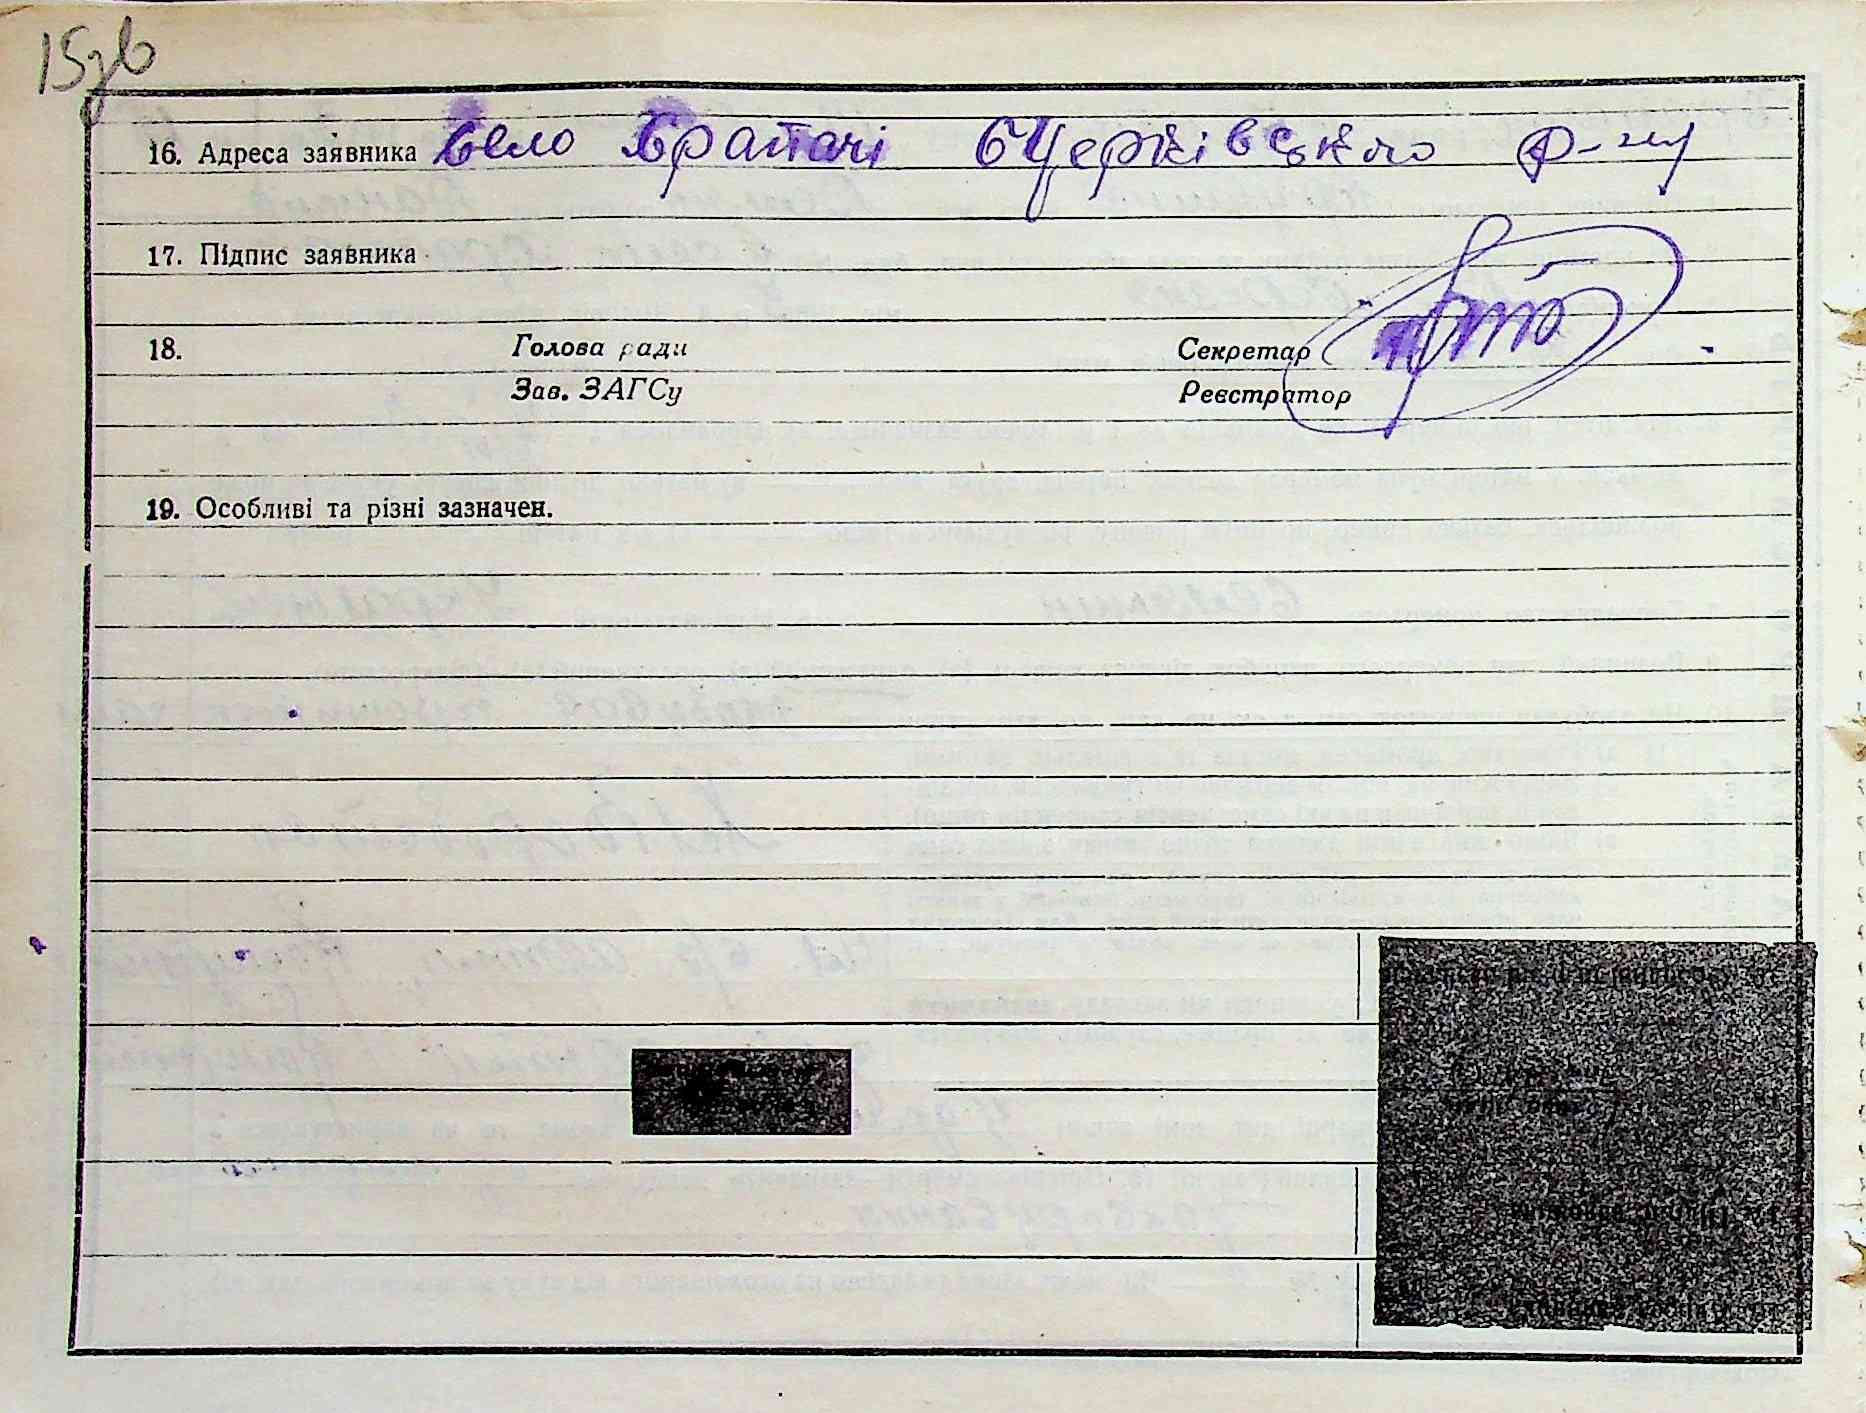 15зв
16. Адреса заявника село Храпачі БЦерківського р-ну
17. Підпис заявника
18. Голова ради Секретар
Зав. ЗАГСу Реєстратор
19. Особливі та різні зазначен.